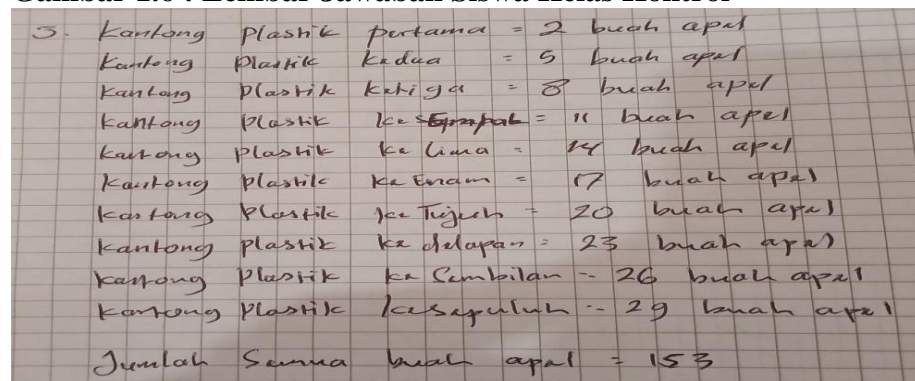 Gambar 1.6 : Lembar Jawaban Siswa Kelas Kontrol
3. Kantong Plastik pertama = 2 buah apel
Kantong Plastik kedua = 5 buah apel
Kantong Plastik ketiga = 8 buah apel
Kantong Plastik ke empat = 11 buah apel
Kantong Plastik ke lima = 14 buah apel
Kantong Plastik ke Enam = 17 buah apel
Kantong Plastik ke Tujuh = 20 buah apel
Kantong Plastik ke delapan = 23 buah apel
Kantong Plastik ke Sembilan = 26 buah apel
Kantong Plastik kesepuluh = 29 buah apel
Jumlah Semua buah apel = 153